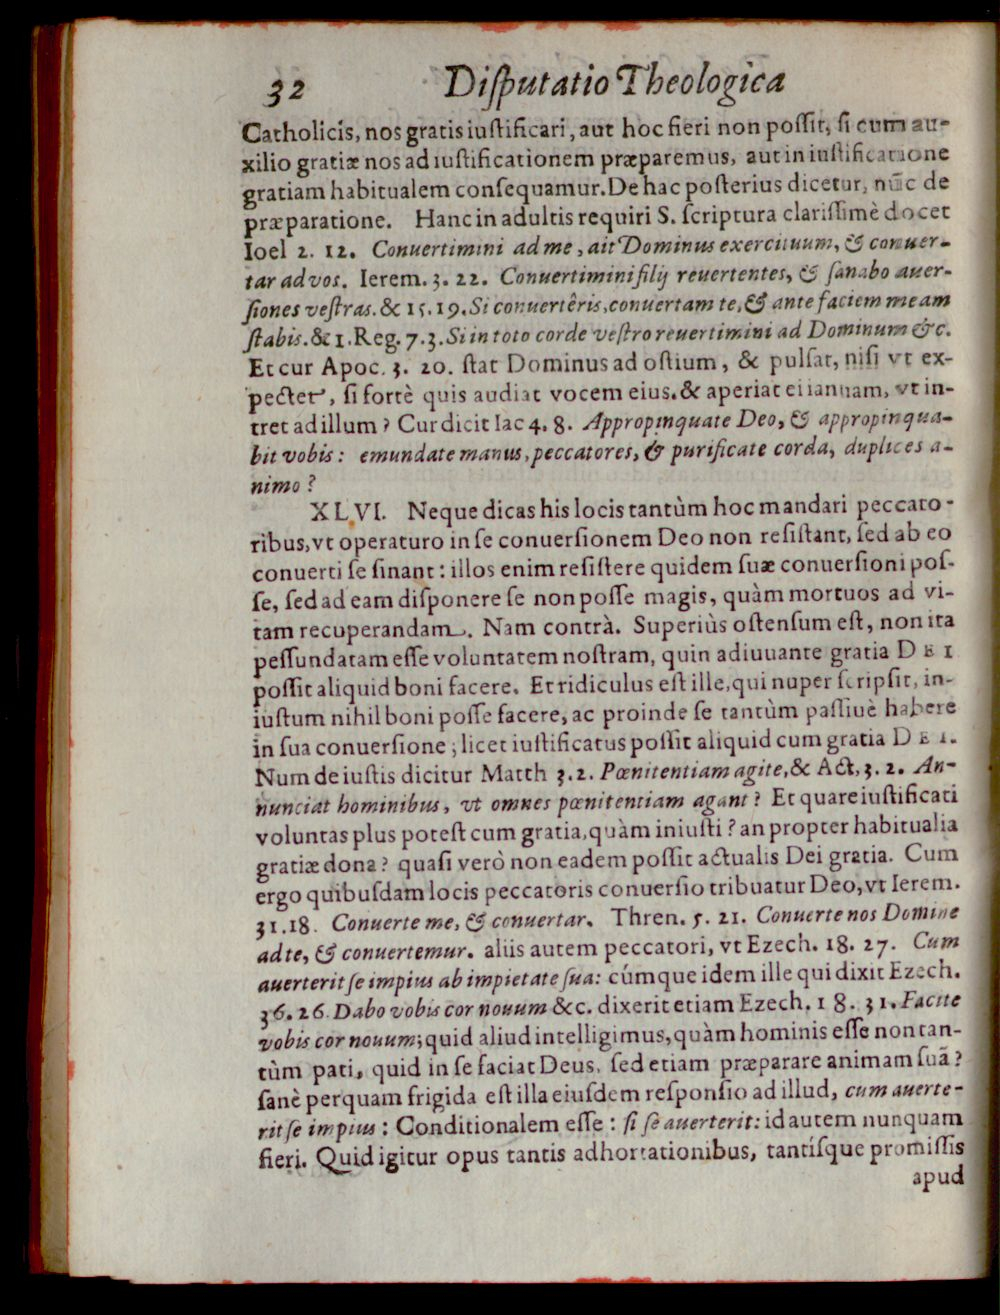 32 Diſputatio Theologica
Catholicis, nos gratis iuſtificari, aut hoc fieri non poſſit, ſi cum au-
xilio gratiæ nos ad iuſtificationem præparemus, aut in iuſtificatione
gratiam habitualem conſequamur. De hac poſterius dicetur, nũc de
præparatione. Hanc in adultis requiri S. ſcriptura clariſſimè docet
Ioel 2. 12. Conuertimini ad me, ait Dominus exercituum, & conuer-
tar ad vos. Ierem. 3. 22. Conuertimini filij reuertentes, & ſanabo auer-
ſiones veſtras. & 15. 19. Si conuertêris, conuertam te, & ante faciem meam
ſtabis. & 1. Reg. 7. 3. Si in toto corde veſtro reuertimini ad Dominum &c.
Et cur Apoc. 3. 20. ſtat Dominus ad oſtium, & pulſat, niſi vt ex-
pectet, ſi fortè quis audiat vocem eius. & aperiat ei ianuam, vt in-
tret ad illum? Cur dicit Iac 4. 8. Appropinquate Deo, & appropinqua-
bit vobis: emundate manus, peccatores, & purificate corda, duplices a-
nimo?
XLVI. Neque dicas his locis tantùm hoc mandari peccato-
ribus, vt operaturo in ſe conuerſionem Deo non reſiſtant, ſed ab eo
conuerti ſe ſinant: illos enim reſiſtere quidem ſuæ conuerſioni poſ-
ſe, ſed ad eam diſponere ſe non poſſe magis, quàm mortuos ad vi-
tam recuperandam. Nam contrà. Superiùs oſtenſum eſt, non ita
peſſundatam eſſe voluntatem noſtram, quin adiuuante gratia DEI
poſſit aliquid boni facere. Et ridiculus eſt ille, qui nuper ſcripſit, in-
iuſtum nihil boni poſſe facere, ac proinde ſe tantùm paſſiuè habere
in ſua conuerſione; licet iuſtificatus poſſit aliquid cum gratia DEI.
Num de iuſtis dicitur Matth 3. 2. Pœnitentiam agite, & Act, 3. 2. An-
nunciat hominibus, vt omnes pœnitentiam agant? Et quare iuſtificati
voluntas plus poteſt cum gratia, quàm iniuſti? an propter habitualia
gratiæ dona? quaſi verò non eadem poſſit actualis Dei gratia. Cum
ergo quibuſdam locis peccatoris conuerſio tribuatur Deo, vt Ierem.
31. 18. Conuerte me, & conuertar. Thren. 5. 21. Conuerte nos Domine
ad te, & conuertemur. aliis autem peccatori, vt Ezech. 18. 27. Cum
auerterit ſe impius ab impietate ſua: cúmque idem ille qui dixit Ezech.
36. 26 Dabo vobis cor nouum &c. dixerit etiam Ezech. 18. 31. Facite
vobis cor nouum; quid aliud intelligimus, quàm hominis eſſe non tan-
tùm pati, quid in ſe faciat Deus, ſed etiam præparare animam ſuã?
ſanè perquam frigida eſt illa eiuſdem reſponſio ad illud, cum auerte-
rit ſe impius: Conditionalem eſſe: ſi ſe auerterit: id autem nunquam
fieri. Quid igitur opus tantis adhortationibus, tantíſque promiſſis
apud